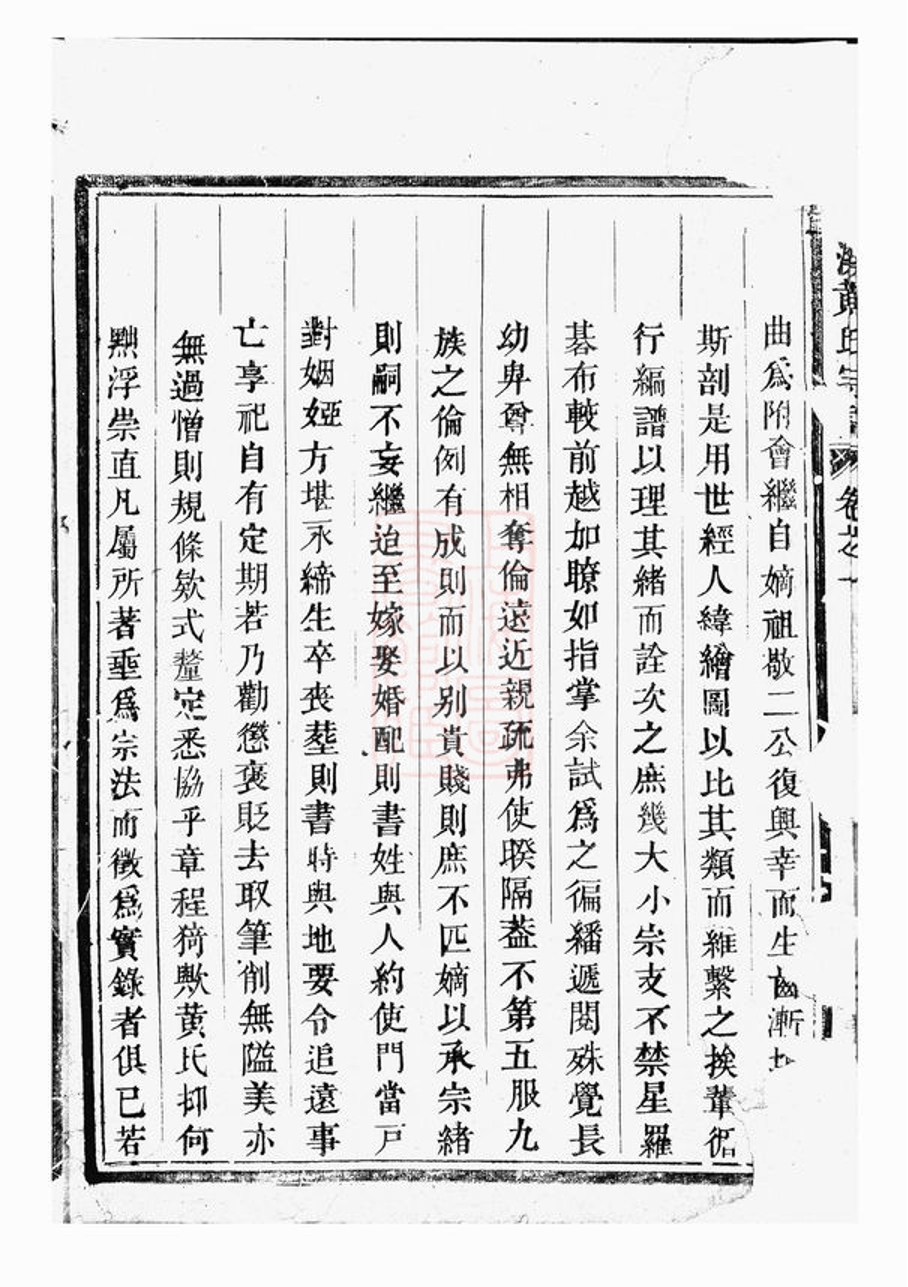 黄氏宗譜 卷之一
曲爲附會繼自嫡祖敬二公復興幸而生齒漸
斯剖是用世經人緯繪圖以比其類而維繫之挨輩循
行編譜以理其緒而詮次之庶幾大小宗支不禁星羅
碁布較前越如瞭如指掌余試爲之徧繙遞閱殊覺長
幼卑尊無相奪倫遠近親疏弗使暌隔葢不第五服九
族之倫例有成則而以别貴賤則庶不匹嫡以承宗緒
則嗣不妄繼迨至嫁娶婚配則書姓與人約使門當戸
對姻婭方堪永締生卒喪塟則書時與地要令追遠事
亡享祀自有定期若乃勸懲褒貶去取筆削無隘美亦
無過憎則規條欵式釐定悉協乎章程猗歟黄氏抑何
黜浮崇直凡屬所著埀爲宗法而徵爲實錄者俱已若